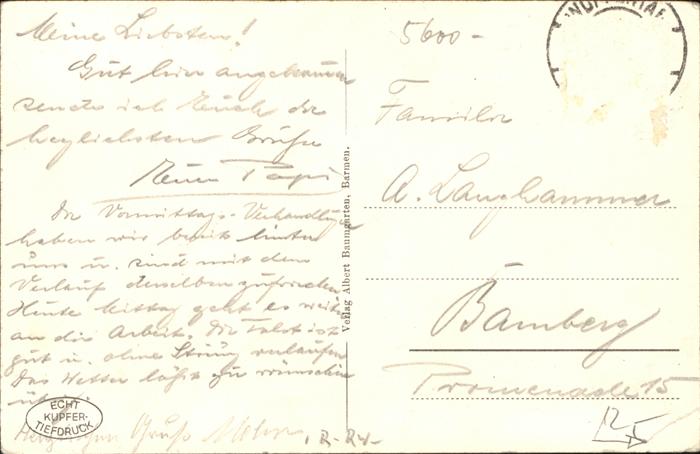 Meine Liebsten!
Gut hier angekommen
sende ich Euch die
herzlichsten Grüße
Euer Papi
Die Vormittags-Verhandlung
haben wir bereits hinter
uns u. sind mit dem
Verlauf derselben zufrieden.
Heute Mittag geht es weiter
an die Arbeit. Die Fahrt ist
gut u. ohne Störung verlaufen
Das Wetter läßt zu wünschen
Gruß
ECHT
KUPFER-
TIEFDRUCK
Verlag Albert Baumgarten, Barmen.
5600-
Familie
A. Langhammer
Bamberg
Promenade 15